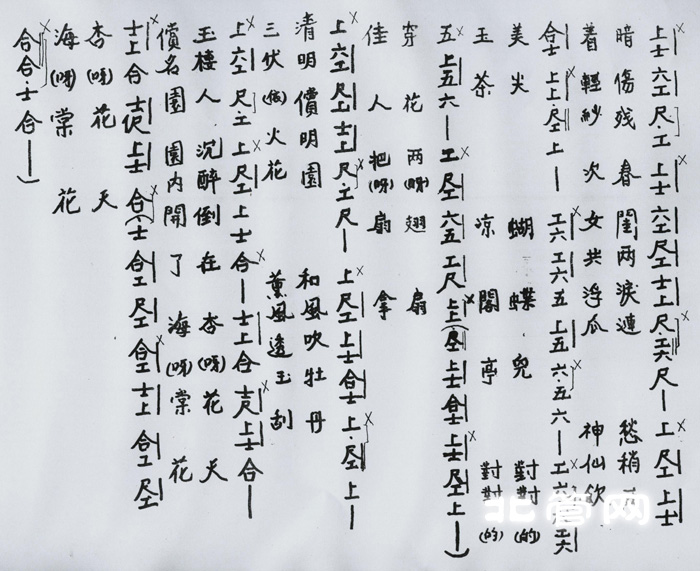 上士 六工 尺·工 上士 六工 尺工 士上 尺·工六 尺—上 尺工 上士
暗傷殘春 閨兩淚漣 愁稍
着輕紗 次女共浮瓜 神仙飲
合士 上上·尺工 上— 工六工六五 上五 六·五六—工 工六
美尖 蝴蝶兒 對對(的)
玉茶 凉閣亭 對對(的)
五 上五六—工 尺工 六五 工尺 上上(尺工 上士 合士 上士 尺工 上—)
穿花兩(呀)翅扇
佳人把(呀)扇拿
上 六工 尺工 士上 尺·工 尺—上 尺工 上士 合士 上·尺工 上—
清明償明園 和風吹牡丹
三伏(依)火花 薰風透玉刮
上 六工 尺·工 上·尺工 上士 合—士上 合 上士 合—
玉樓人沉醉倒在杏(呀)花天
償名園園內開了海(呀)棠花
士上 合 上士 合(士 合工 尺工 合工 士上 合工 尺工
杏(呀)花天
海(呀)棠花
合合·士合—)
北管网